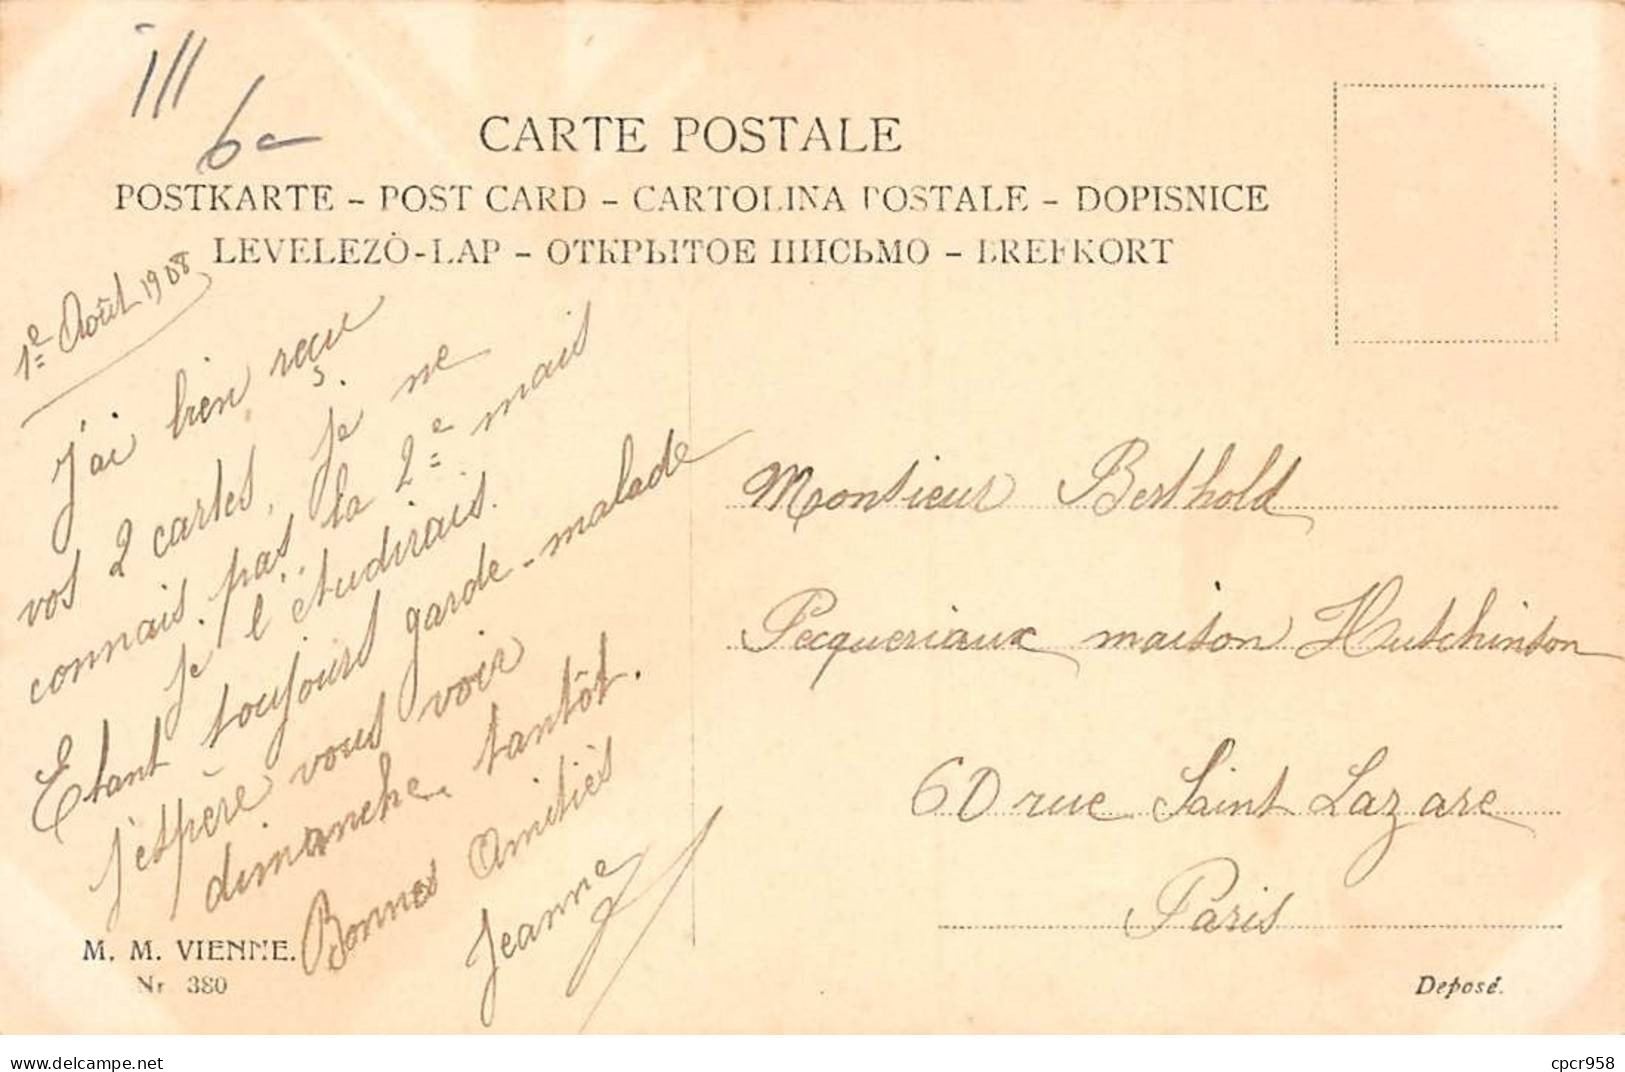 III
6-
CARTE POSTALE
POSTKARTE - POST CARD - CARTOLINA POSTALE - DOPISNICE
LEVELEZÖ-LAP - ОТКРЫТОЕ ПИСЬМО - BREFKORT
1e Août 1908
J'ai bien reçu
vos 2 cartes, Je ne
connais pas la 2e mais
Je l'étudirais.
Etant toujours garde-malade
J'espère vous voir
dimanche tantôt.
Bonnes Amitiés
Jeanne
Monsieur Berthold
Pecqueriaux maison Hutchinson
60 rue Saint Lazare
Paris
M. M. VIENNE.
Nr 380
Deposé.
delcampe.net
cpcr958